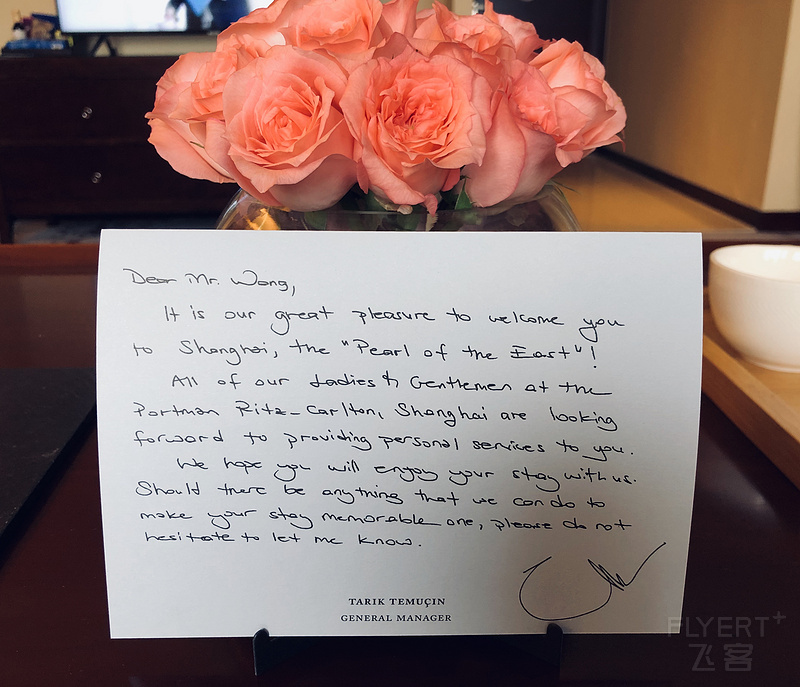 Dear Mr. Wang,
It is our great pleasure to welcome you
to Shanghai, the "Pearl of the East"!
All of our Ladies & Gentlemen at the
Portman Ritz-Carlton, Shanghai are looking
forward to providing personal services to you.
We hope you will enjoy your stay with us.
Should there be anything that we can do to
make your stay memorable one, please do not
hesitate to let me know.
TARIK TEMUÇIN
GENERAL MANAGER
FLYERT+
飞客